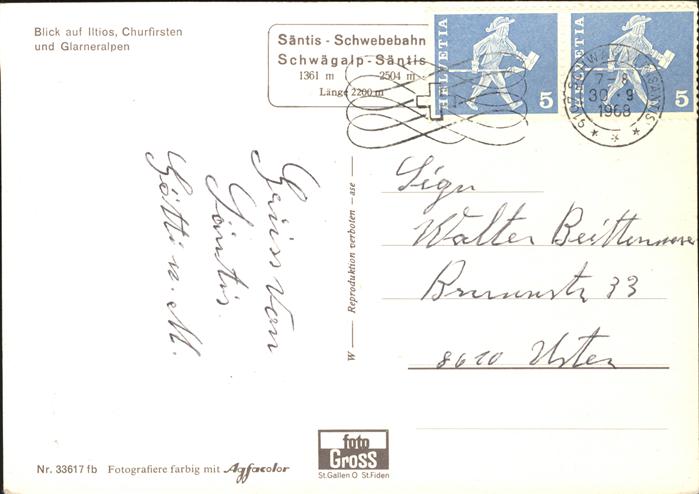 Blick auf Iltios, Churfirsten
und Glarneralpen
Säntis - Schwebebahn
Schwägalp - Säntis
1361 m 2504 m
Länge 2200 m
HELVETIA
5
HELVETIA
5
7-8
30.-9
1968
Gruss von
Säntis.
Götti u. M.
W — Reproduktion verboten - ase —
Sign
Walter
8610 Uster
foto
GROSS
St.Gallen O St.Fiden
Nr. 33617 fb Fotografiere farbig mit Agfacolor